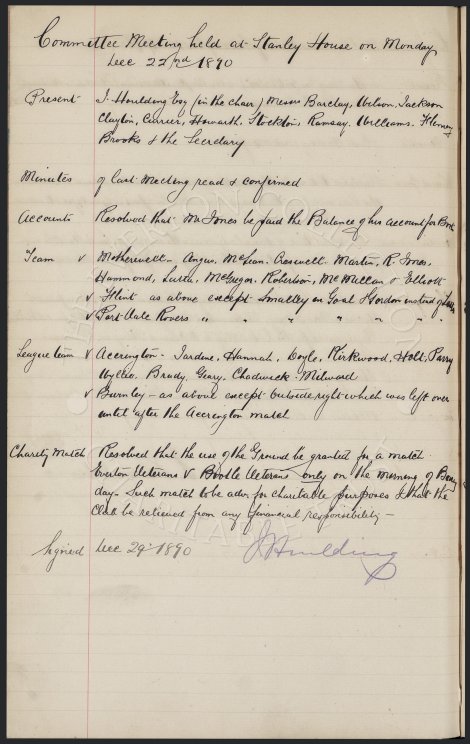 Committee Meeting held at Stanley House on Monday
Dec 22nd 1890
Present J. Houlding Esq (in the chair) Messrs Barclay, Wilson, Jackson
Clayton, Currier, Howarth, Stockton, Ramsay, Williams, Fleming
Brooks & the Secretary
Minutes of last Meeting read & confirmed
Accounts Resolved that Mr Jones be paid the Balance of his account for
Team v Motherwell - Angus, McLean, Cresswell, Martin, R. Jones,
Hammond, McGregor, Robertson, McMillan & Elliott
v Flint as above except Smalley in Goal & Gordon instead of
v Port Vale Rovers " " " " " "
League team v Accrington - Jardine, Hannah, Doyle, Kirkwood, Holt, Parry
Wyllie, Brady, Geary, Chadwick - Milward
v Burnley - as above except outside right which was left over
until after the Accrington match
Charity Match Resolved that the use of the Ground be granted for a match
Everton Veterans V Bootle Veterans only on the morning of
day - Such match to be for charitable purposes & that the
Club be relieved from any financial responsibility -
Signed Dec 29th 1890 J Houlding